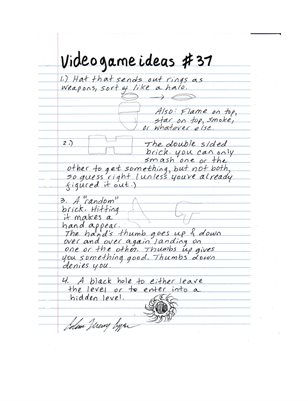 Videogame ideas #37
1.) Hat that sends out rings as
weapons, sort of like a halo.
Also: Flame on top,
star on top, smoke,
or whatever else.
2.) The double sided
brick. you can only
smash one or the
other to get something, but not both,
so guess right (unless you've already
figured it out.)
3. A "random"
brick. Hitting
it makes a
hand appear.
The hand's thumb goes up & down
over and over again landing on
one or the other. Thumbs up gives
you something good. Thumbs down
denies you.
4. A black hole to either leave
the level or to enter into a
hidden level.